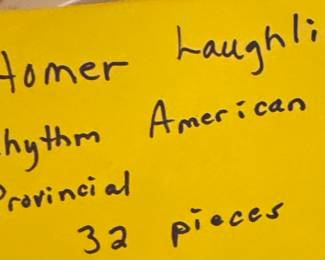 Homer Laughli
hythm American
Provincial
32 pieces